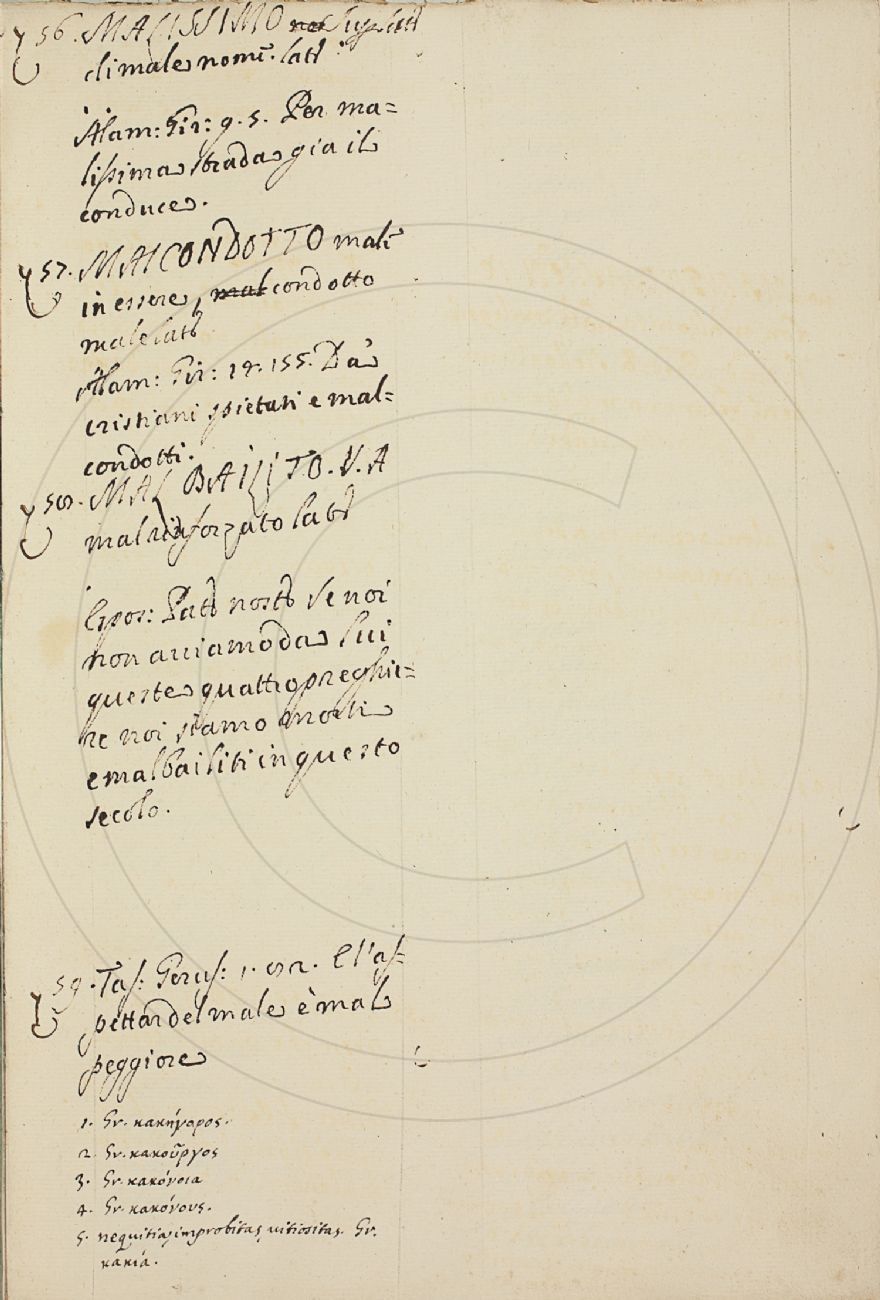 56. MALISSIMO not Superlatt
di male nome. latt
Alam: Gir: 9. 5. Per ma=
lissima strada gia il
conduce.
57. MALCONDOTTO male
in essere, mal condotto
male latt
Alam: Gir: 19. 155. Da
cristiani spietati e mal=
condotti.
58. MAL BAILITO. V. A
mal rinforzato latt
Espos: Patt nostt Se noi
non auiamo da lui
queste quattro preghie=
re noi siamo morti
e malbailiti in questo
secolo.
59. Tas: Gerus: 1. 82. E l'as=
pettar del male è mal
peggiore
1. Gr. κακήγορος.
2. Gr. κακοῦργος
3. Gr. κακόνοια
4. Gr. κακόνους.
5. nequitia, improbitas, uitiositas. Gr.
κακία.